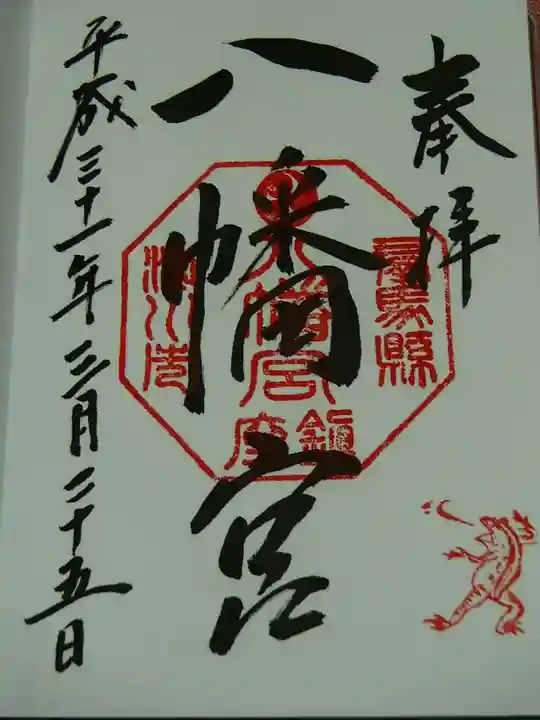 奉拝
八幡宮
群馬縣
八幡宮
渋川市
鎮座
平成三十一年三月二十五日